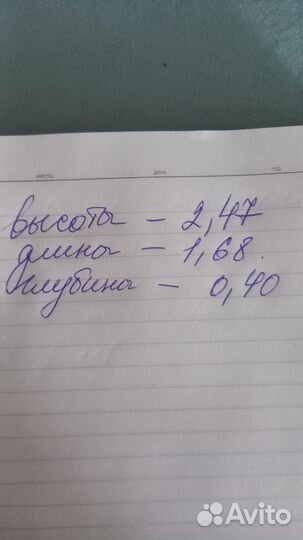 месяц день год
высота – 2,47
длина – 1,68.
глубина – 0,40
Avito